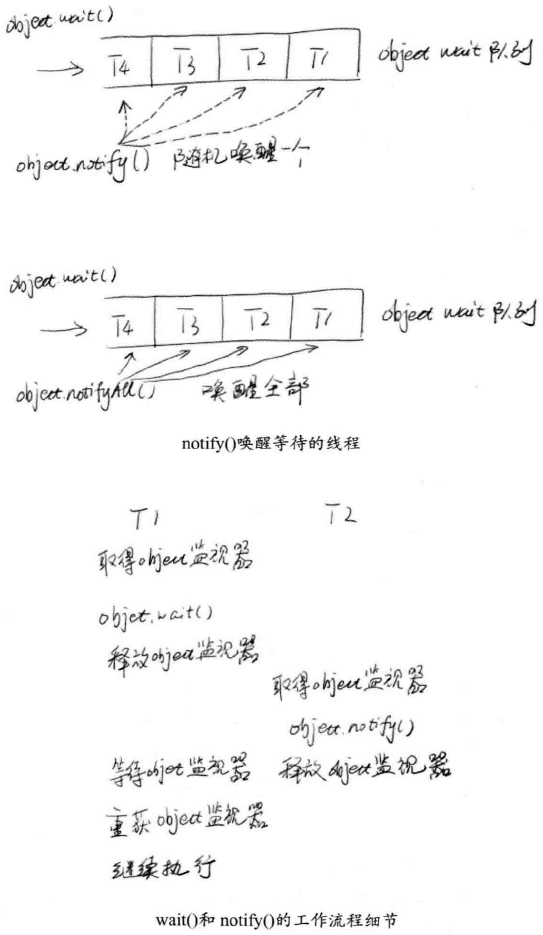 object.wait()
T4 T3 T2 T1 object wait 队列
object.notify() 随机唤醒一个
object.wait()
T4 T3 T2 T1 object wait 队列
object.notifyAll() 唤醒全部
notify()唤醒等待的线程
T1 T2
取得object监视器
objet.wait()
释放object监视器
取得object监视器
object.notify()
等待objet监视器 释放object监视器
重获object监视器
继续执行
wait()和 notify()的工作流程细节